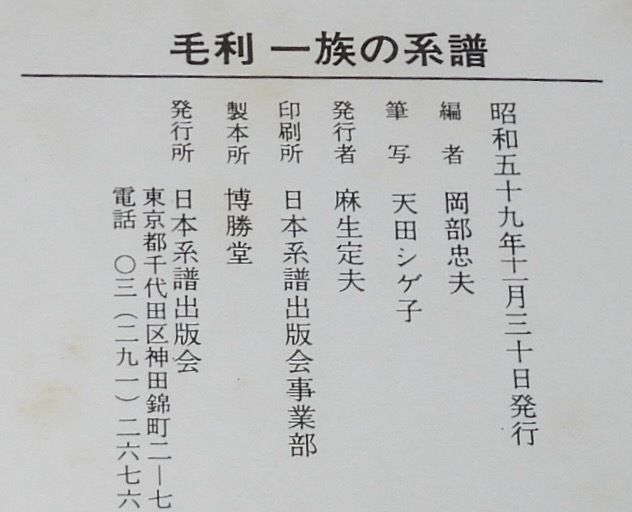 毛利一族の系譜
昭和五十九年十一月三十日発行
編者 岡部忠夫
筆写 天田シゲ子
発行者 麻生定夫
印刷所 日本系譜出版会事業部
製本所 博勝堂
発行所 日本系譜出版会
東京都千代田区神田錦町二―七
電話 〇三(二九一)二六七六